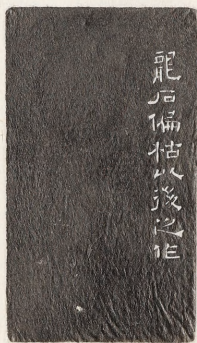 龍石偏枯以後之作